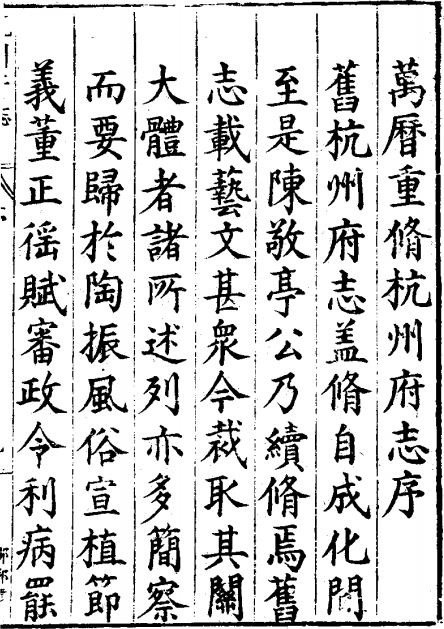 萬曆重脩杭州府志序
舊杭州府志盖脩自成化間
至是陳敬亭公乃續脩焉舊
志載藝文甚衆今裁取其關
大體者諸所述列亦多簡察
而要歸於陶振風俗宣植節
義董正徭賦審政令利病罷